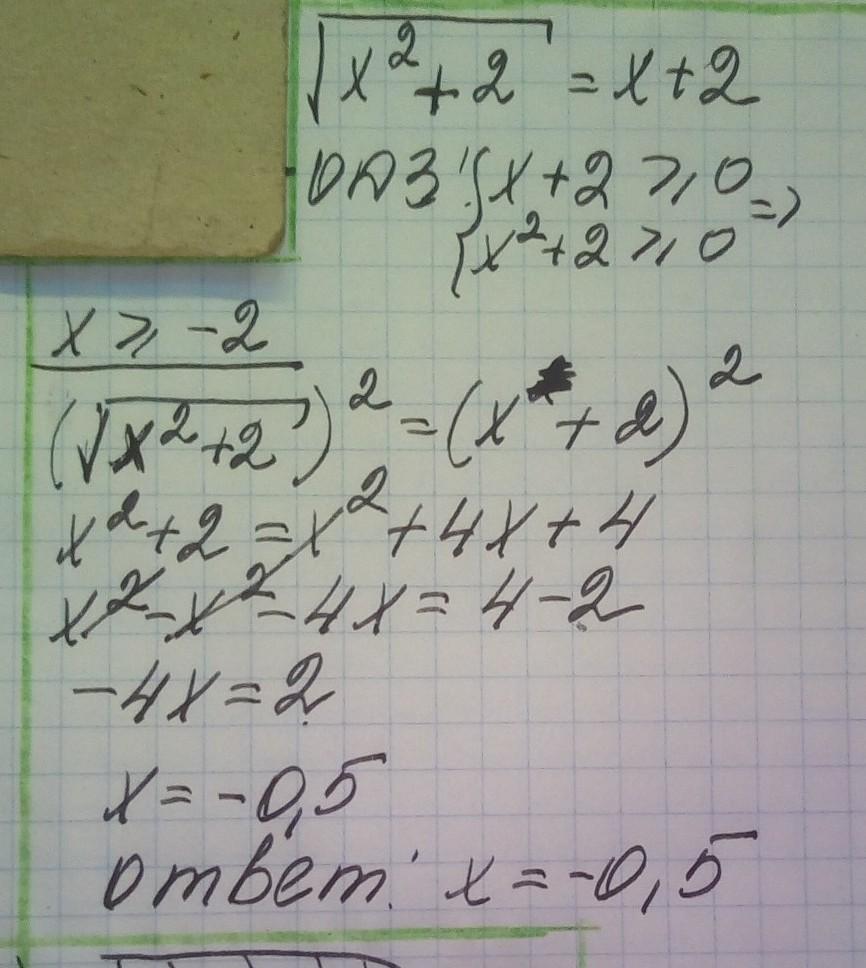 √(x²+2) = x+2
ОДЗ: {x+2 ⩾ 0 =>
{x²+2 ⩾ 0
x ⩾ -2
(√(x²+2))² = (x + 2)²
x²+2 = x²+4x+4
x²-x²-4x = 4-2
-4x = 2
x = -0,5
ответ: x = -0,5